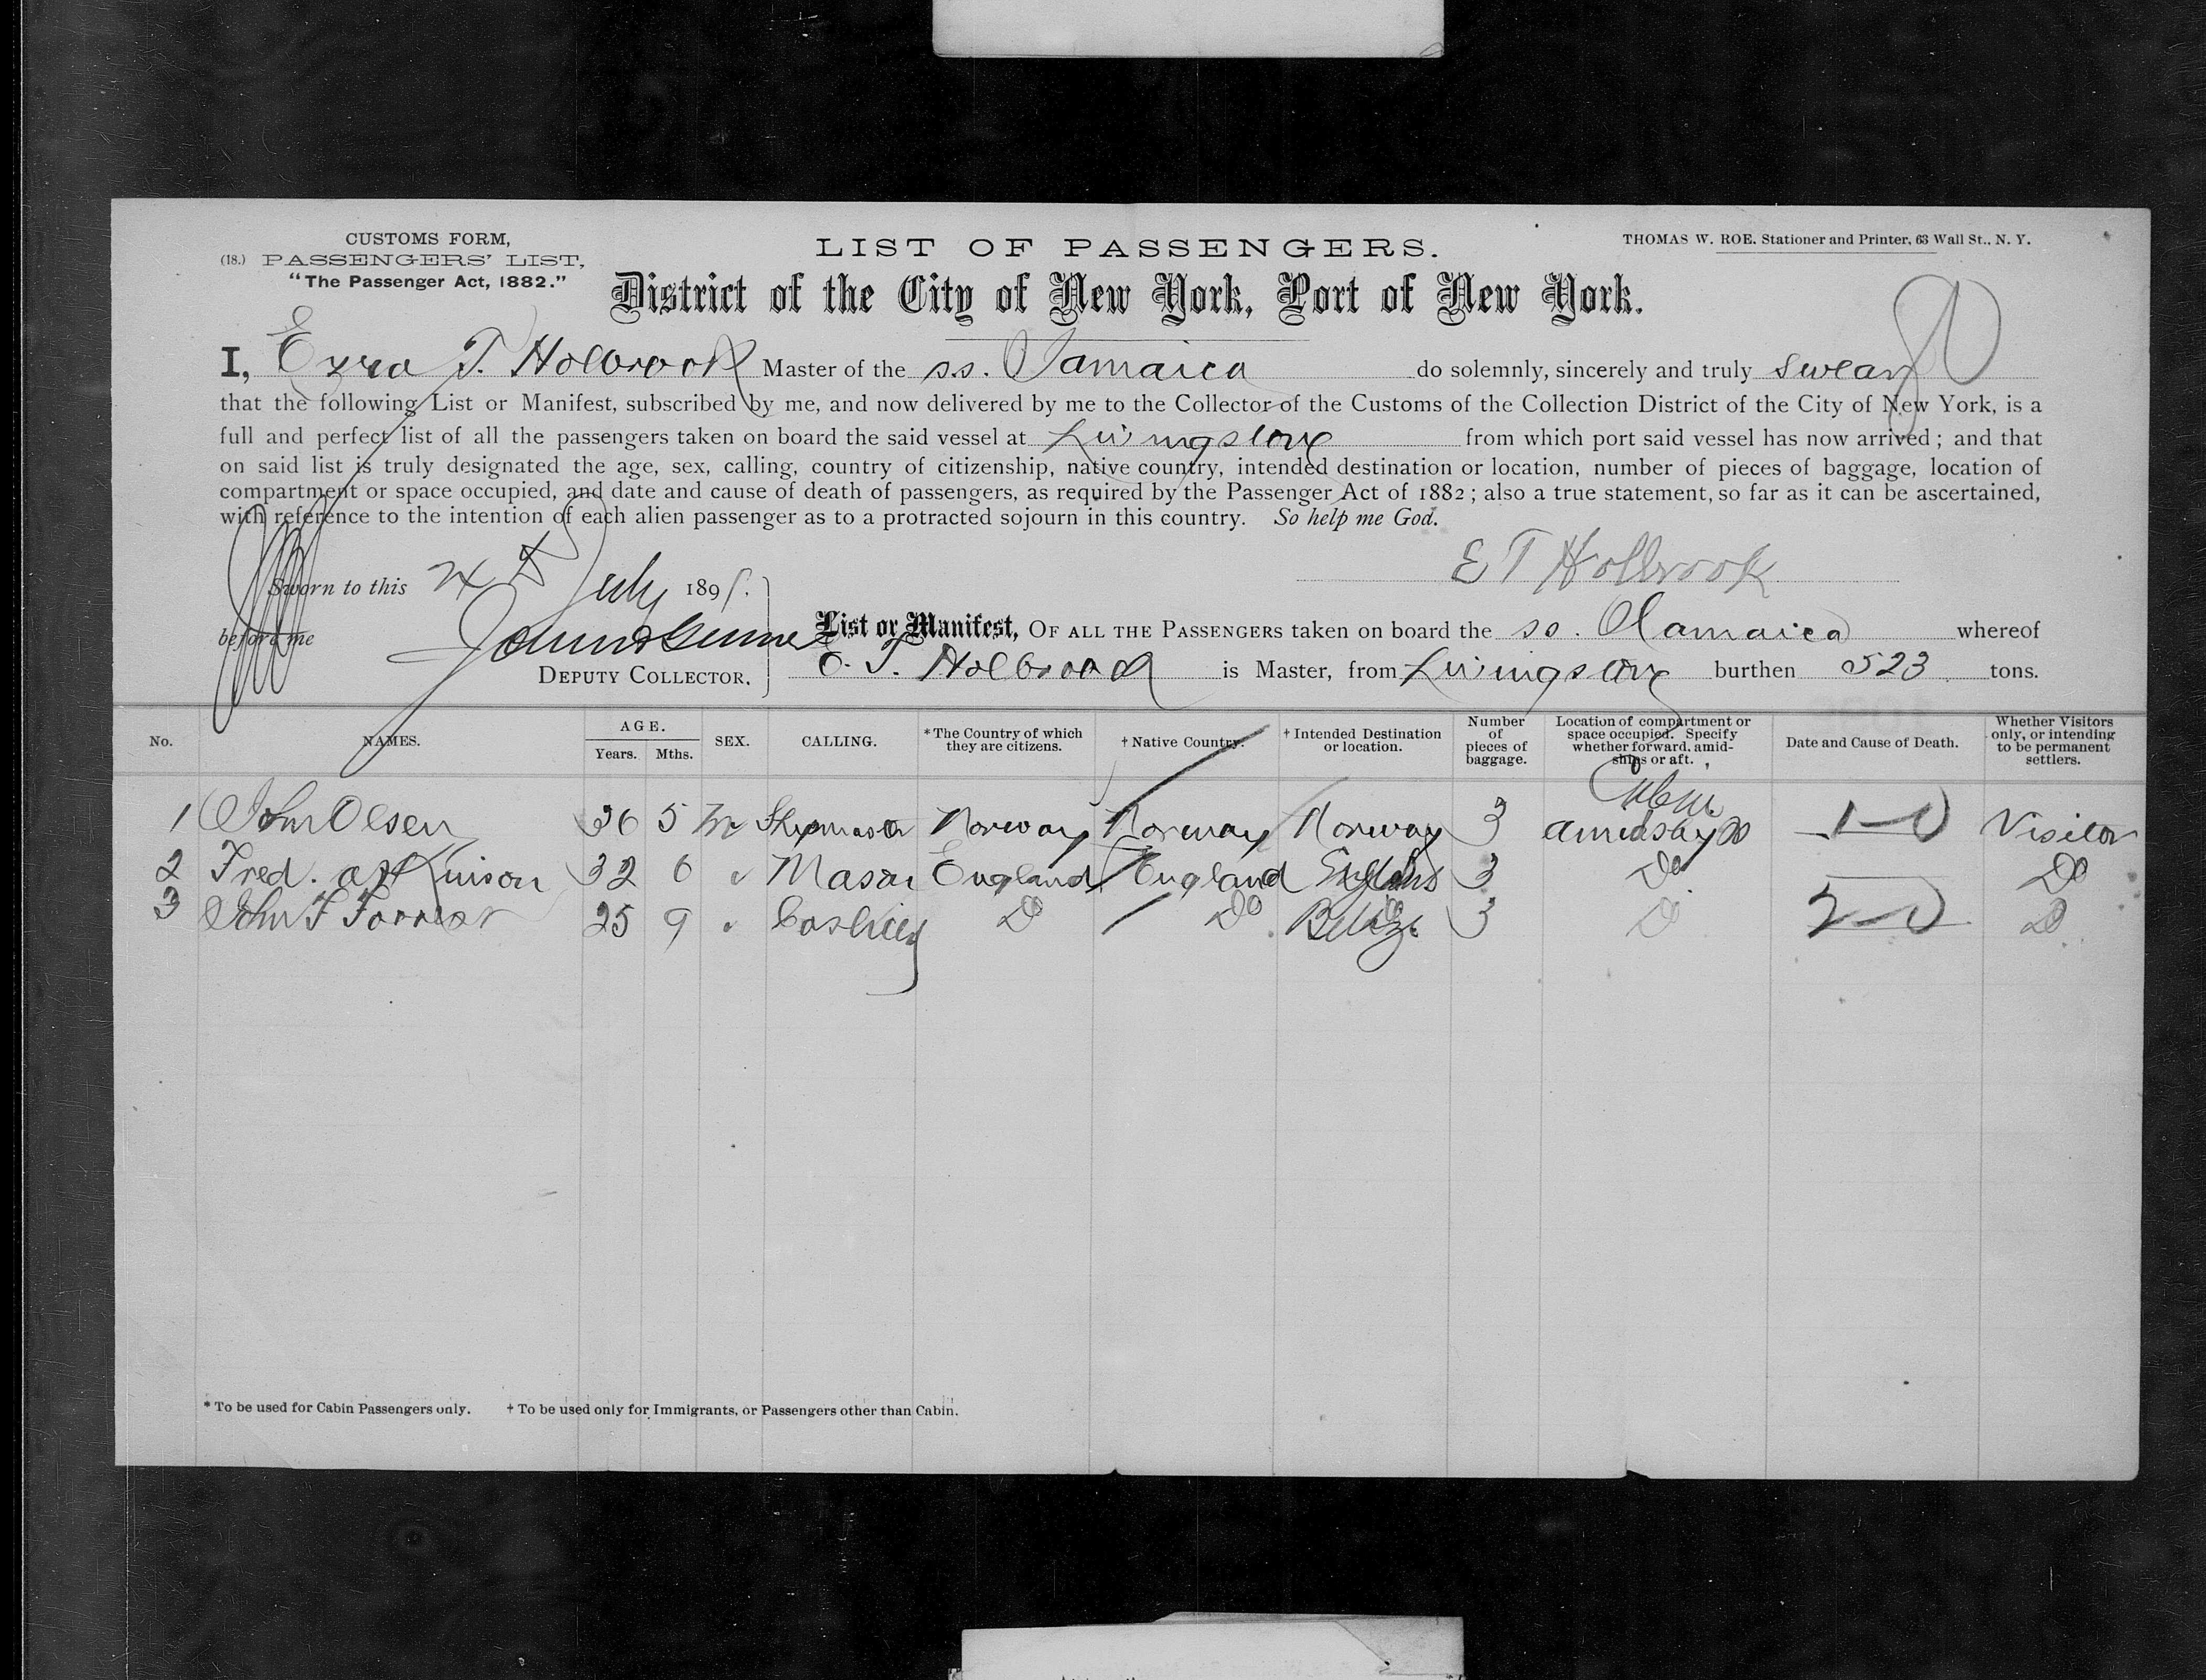 CUSTOMS FORM,
(18.) PASSENGERS' LIST,
"The Passenger Act, 1882."
LIST OF PASSENGERS.
THOMAS W. ROE. Stationer and Printer, 63 Wall St., N. Y.
District of the City of New York, Port of New York.
I, Ezra T. Holbrook Master of the ss. Jamaica do solemnly, sincerely and truly swear
that the following List or Manifest, subscribed by me, and now delivered by me to the Collector of the Customs of the Collection District of the City of New York, is a
full and perfect list of all the passengers taken on board the said vessel at Livingstone from which port said vessel has now arrived; and that
on said list is truly designated the age, sex, calling, country of citizenship, native country, intended destination or location, number of pieces of baggage, location of
compartment or space occupied, and date and cause of death of passengers, as required by the Passenger Act of 1882; also a true statement, so far as it can be ascertained,
with reference to the intention of each alien passenger as to a protracted sojourn in this country. So help me God.
E T Holbrook
Sworn to this July 189
before me
DEPUTY COLLECTOR.
List or Manifest, OF ALL THE PASSENGERS taken on board the ss. Jamaica whereof
E. T. Holbrook is Master, from Livingstone burthen 523 tons.
No. NAMES. AGE. Years. Mths. SEX. CALLING. *The Country of which they are citizens. † Native Country. † Intended Destination or location. Number of pieces of baggage. Location of compartment or space occupied. Specify whether forward, amidships or aft. Date and Cause of Death. Whether Visitors only, or intending to be permanent settlers.
1 John Olsen 36 5 m Norway Norway Norway 3 Cabin 1-0 Visitor
2 Fred. 32 6 " Mason England England England 3 Do Do
3 John F 25 9 " Do Do Belize 3 D 2-0 Do
* To be used for Cabin Passengers only. † To be used only for Immigrants, or Passengers other than Cabin.